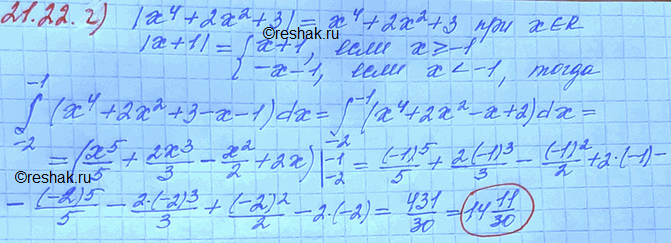 21.22. г) |x⁴+2x²+3| = x⁴+2x²+3 при x∈R
|x+1| = { x+1, если x≥-1
-x-1, если x<-1, тогда
∫₋₂⁻¹ (x⁴+2x²+3-x-1)dx = ∫₋₂⁻¹ (x⁴+2x²-x+2)dx =
= (x⁵/5 + 2x³/3 - x²/2 + 2x) |₋₂⁻¹ = (-1)⁵/5 + 2(-1)³/3 - (-1)²/2 + 2·(-1) -
- (-2)⁵/5 - 2·(-2)³/3 + (-2)²/2 - 2·(-2) = 431/30 = 14 11/30
reshak.ru
reshak.ru
reshak.ru